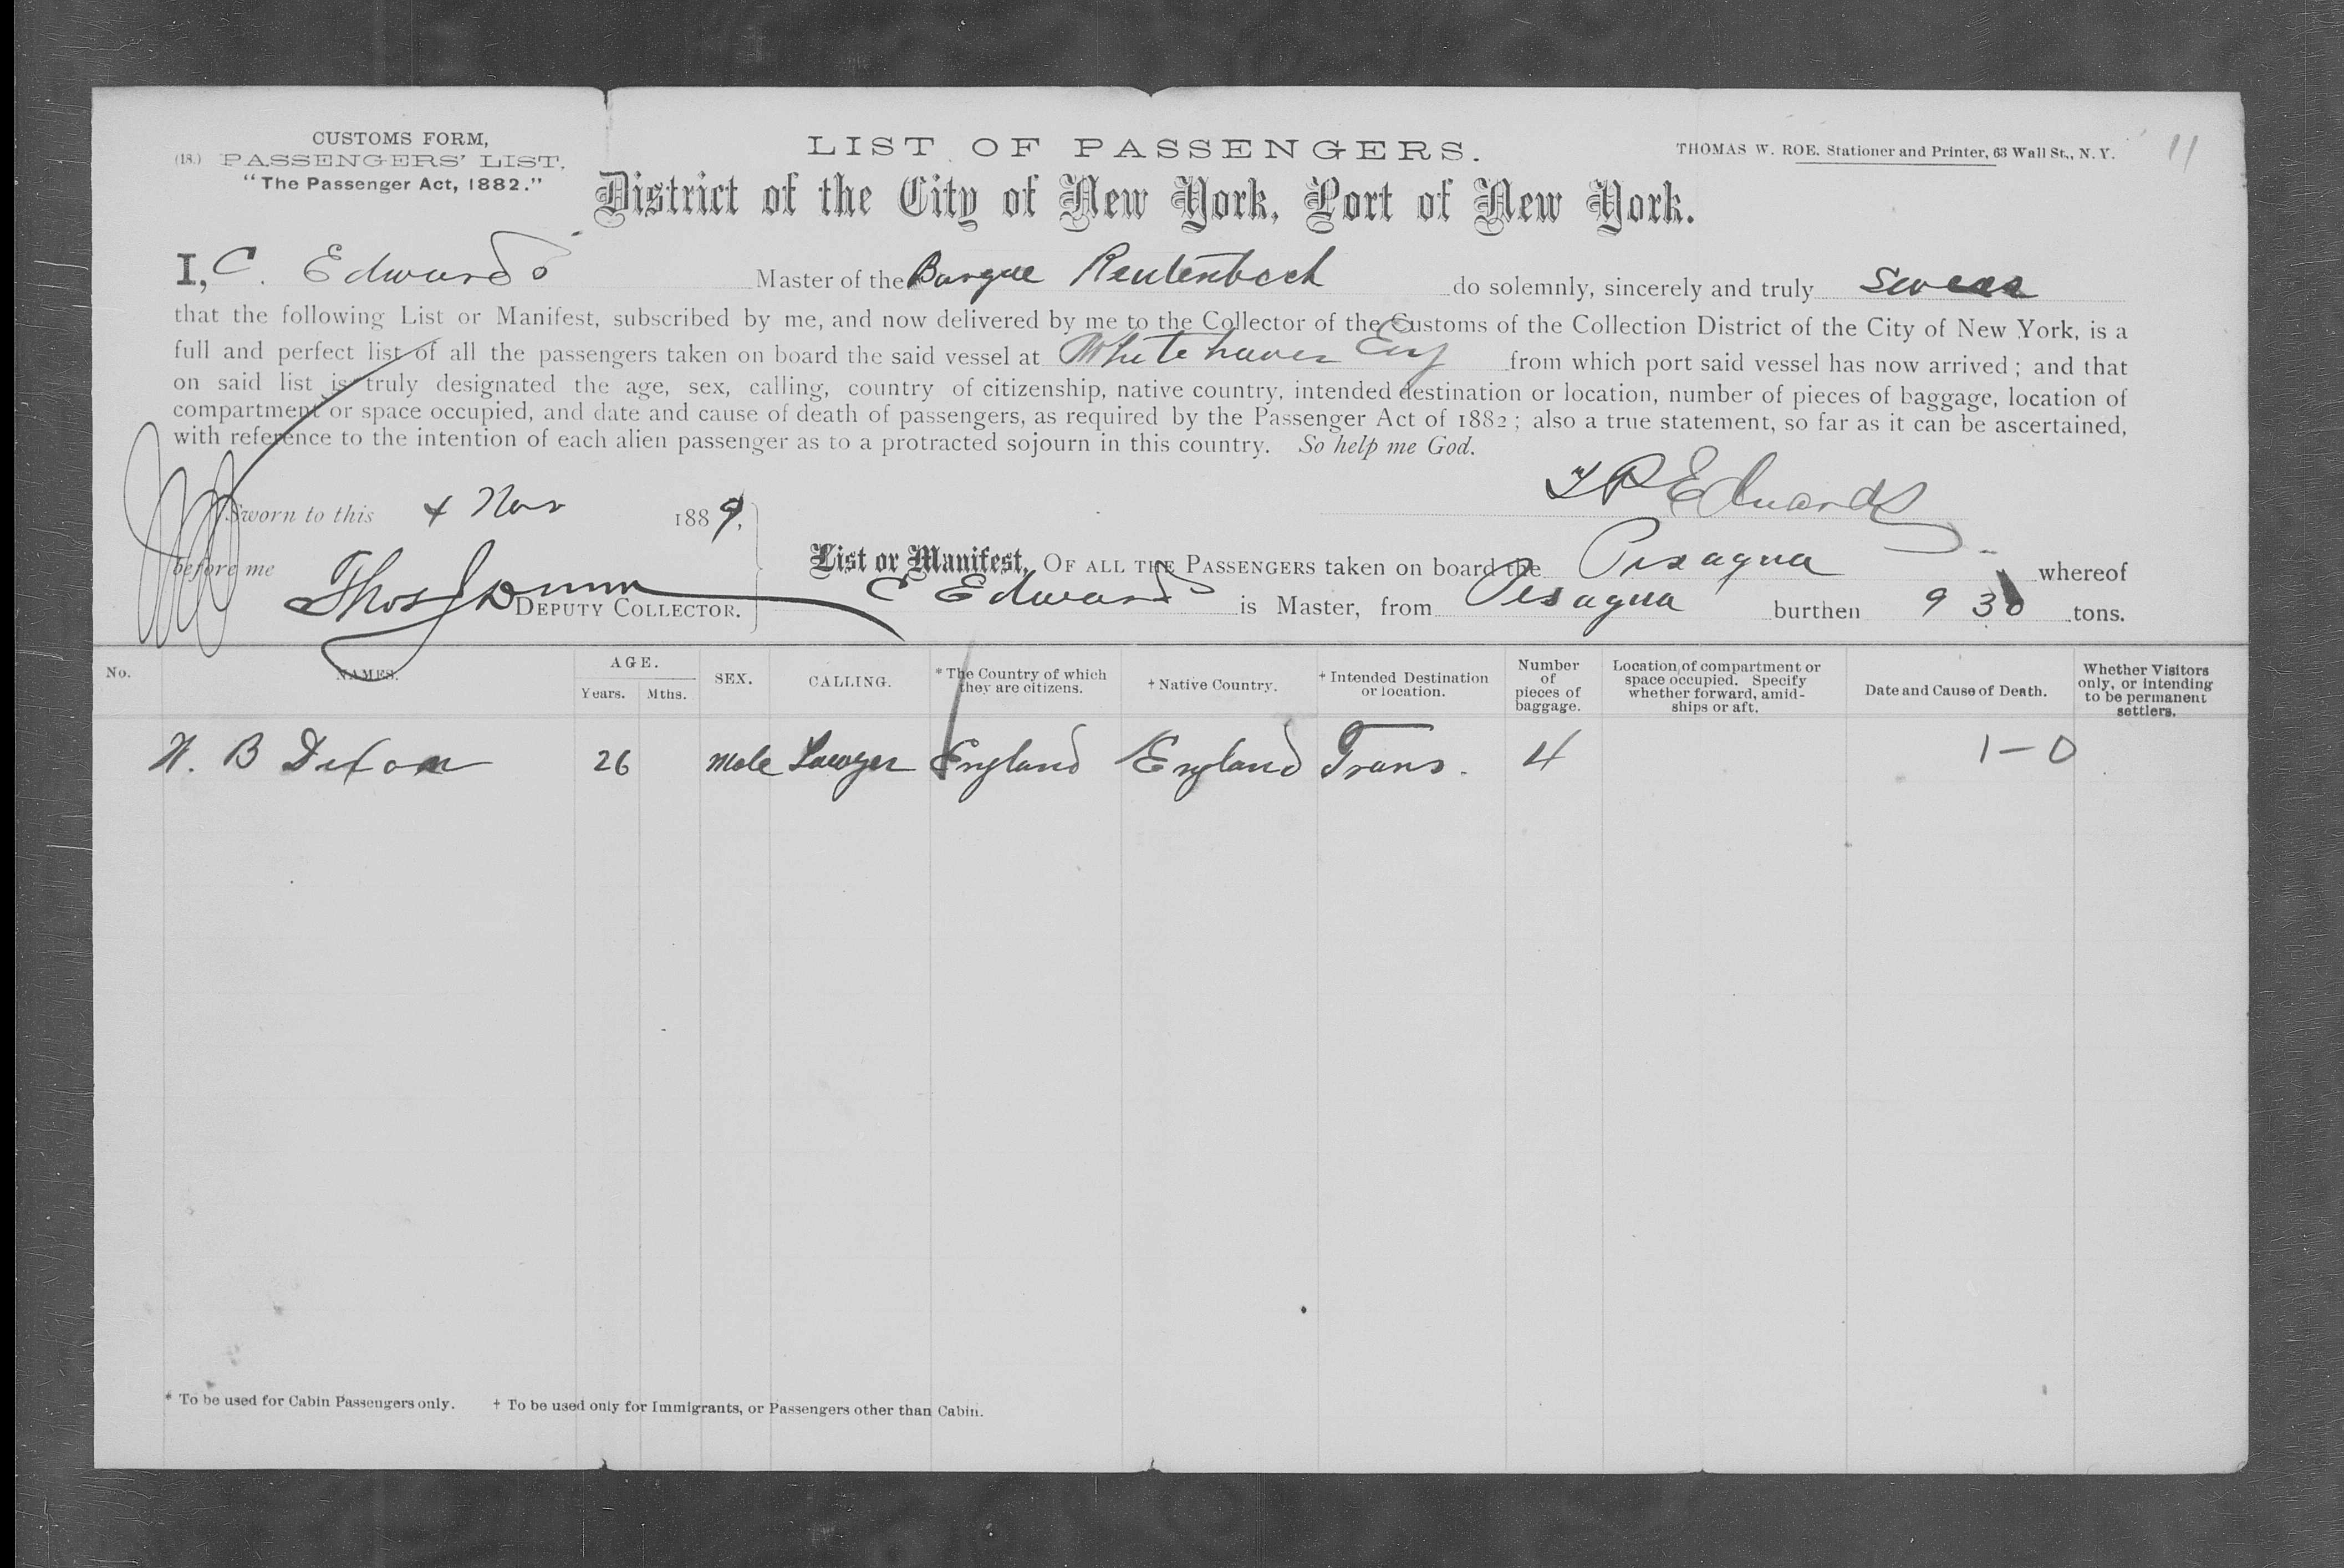 CUSTOMS FORM,
(18.) PASSENGERS' LIST.
"The Passenger Act, 1882."
LIST OF PASSENGERS.
THOMAS W. ROE. Stationer and Printer, 63 Wall St., N. Y.
11
District of the City of New York, Port of New York.
I, C. Edwards Master of the Barque do solemnly, sincerely and truly swear
that the following List or Manifest, subscribed by me, and now delivered by me to the Collector of the Customs of the Collection District of the City of New York, is a
full and perfect list of all the passengers taken on board the said vessel at Whitehaven Eng from which port said vessel has now arrived; and that
on said list is truly designated the age, sex, calling, country of citizenship, native country, intended destination or location, number of pieces of baggage, location of
compartment or space occupied, and date and cause of death of passengers, as required by the Passenger Act of 1882; also a true statement, so far as it can be ascertained,
with reference to the intention of each alien passenger as to a protracted sojourn in this country. So help me God.
Edwards
Sworn to this 4 Nov 1889,
before me Thos
DEPUTY COLLECTOR.
List or Manifest, OF ALL THE PASSENGERS taken on board the Pisagua whereof
C Edwards is Master, from Pisagua burthen 930 tons.
No. NAMES. AGE. Years. Mths. SEX. CALLING. * The Country of which they are citizens. † Native Country. † Intended Destination or location. Number of pieces of baggage. Location of compartment or space occupied. Specify whether forward, amidships or aft. Date and Cause of Death. Whether Visitors only, or intending to be permanent settlers.
B Dixon 26 Male Lawyer England England Trans. 4 1-0
* To be used for Cabin Passengers only. † To be used only for Immigrants, or Passengers other than Cabin.